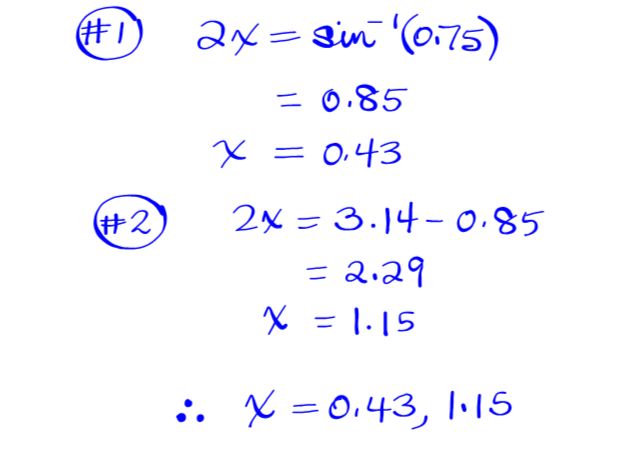 #1 2x = sin⁻¹(0.75)
= 0.85
x = 0.43
#2 2x = 3.14 - 0.85
= 2.29
x = 1.15
∴ x = 0.43, 1.15